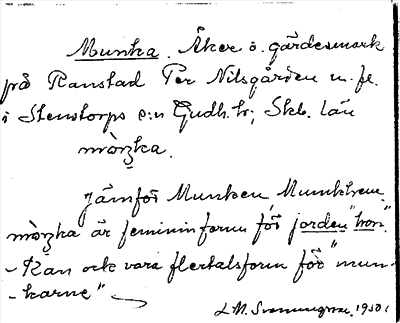 Munka. Åker o. gärdesmark
på Ranstad Per Nilsgården m. fl.
i Stenstorps s:n Gudh. hr; Skb. län
mòŋka.
Jämför Munken, Munktrem
mòŋka är femininform för jorden "hon".
- Kan ock vara flertalsform för "mun-
- karne"
L. M. Svenungsson 1930.